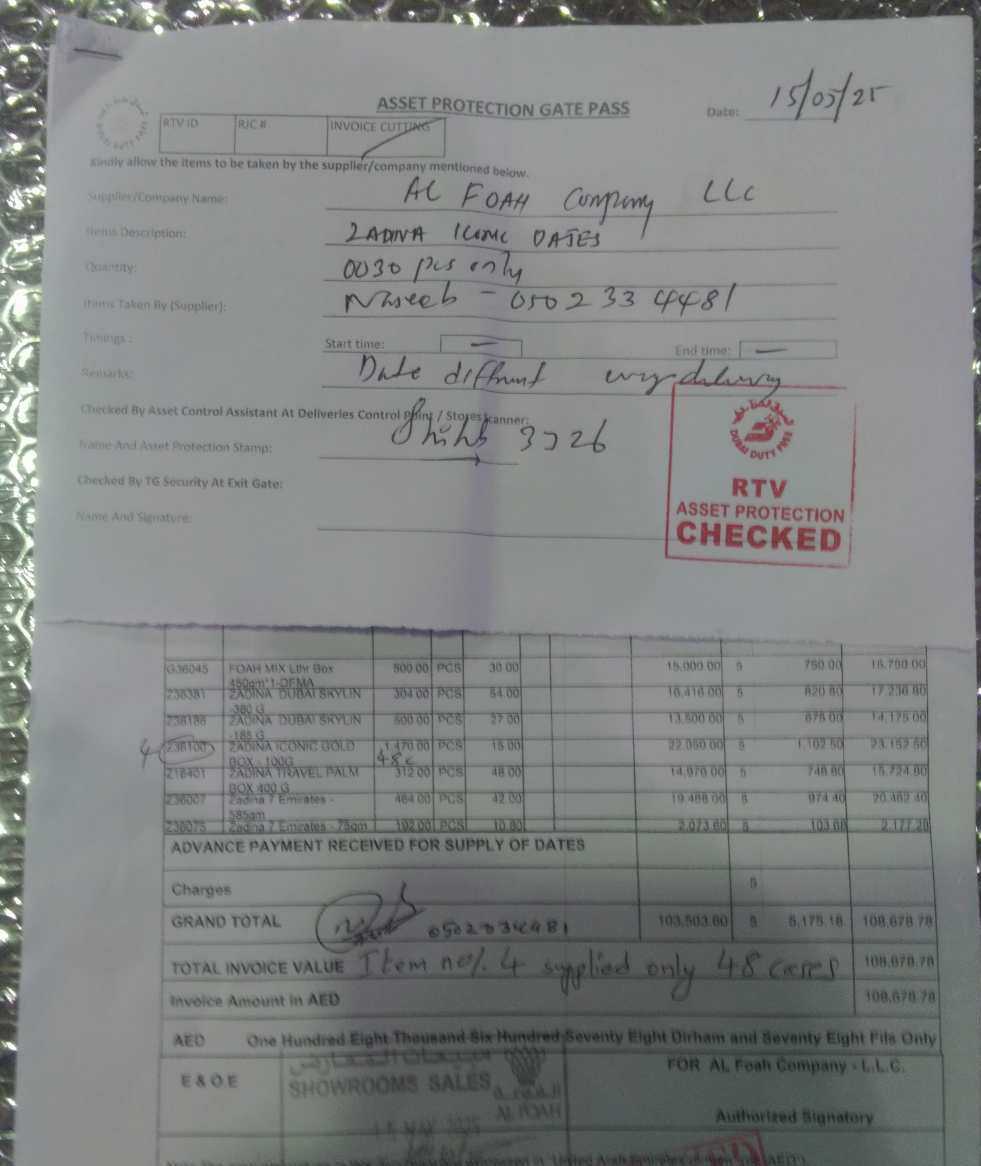 ASSET PROTECTION GATE PASS
Date: 15/05/25
RTV ID RJC # INVOICE CUTTING
Kindly allow the items to be taken by the supplier/company mentioned below.
Supplier/Company Name: AL FOAH Company LLC
Items Description: ZADINA ICONIC DATES
Quantity: 0030 pcs only
Items Taken By (Supplier): Naseeb - 0502334481
Timings : Start time: — End time: —
Remarks: Date diffrunt delivery
Checked By Asset Control Assistant At Deliveries Control Point / Stores scanner:
Name And Asset Protection Stamp: Shihb 3726
Checked By TG Security At Exit Gate:
Name And Signature:
DUBAI DUTY FREE
RTV
ASSET PROTECTION
CHECKED
G36045 FOAH MIX Lthr Box 500.00 PCS 30.00 15,000.00 5 750.00 15,750.00
450gm*1-DFMA
Z36381 ZADINA DUBAI SKYLIN 304.00 PCS 54.00 16,416.00 5 820.80 17,236.80
-380 G
Z36186 ZADINA DUBAI SKYLIN 500.00 PCS 27.00 13,500.00 5 675.00 14,175.00
-185 G
4 Z36100 ZADINA ICONIC GOLD 1,470.00 PCS 15.00 22,050.00 5 1,102.50 23,152.50
BOX - 100G 48c
Z16401 ZADINA TRAVEL PALM 312.00 PCS 48.00 14,976.00 5 748.80 15,724.80
BOX 400 G
Z36007 Zadina 7 Emirates - 464.00 PCS 42.00 19,488.00 5 974.40 20,462.40
585gm
Z36075 Zadina 7 Emirates - 75gm 192.00 PCS 10.80 2,073.60 5 103.68 2,177.28
ADVANCE PAYMENT RECEIVED FOR SUPPLY OF DATES
Charges 5
GRAND TOTAL 103,503.60 5 5,175.18 108,678.78
TOTAL INVOICE VALUE Item no/. 4 supplied only 48 cases 108,678.78
Invoice Amount in AED 108,678.78
AED One Hundred Eight Thousand Six Hundred Seventy Eight Dirham and Seventy Eight Fils Only
E & O E
SHOWROOMS SALES
AL FOAH
MAY 2025
FOR AL Foah Company - L.L.C.
Authorized Signatory